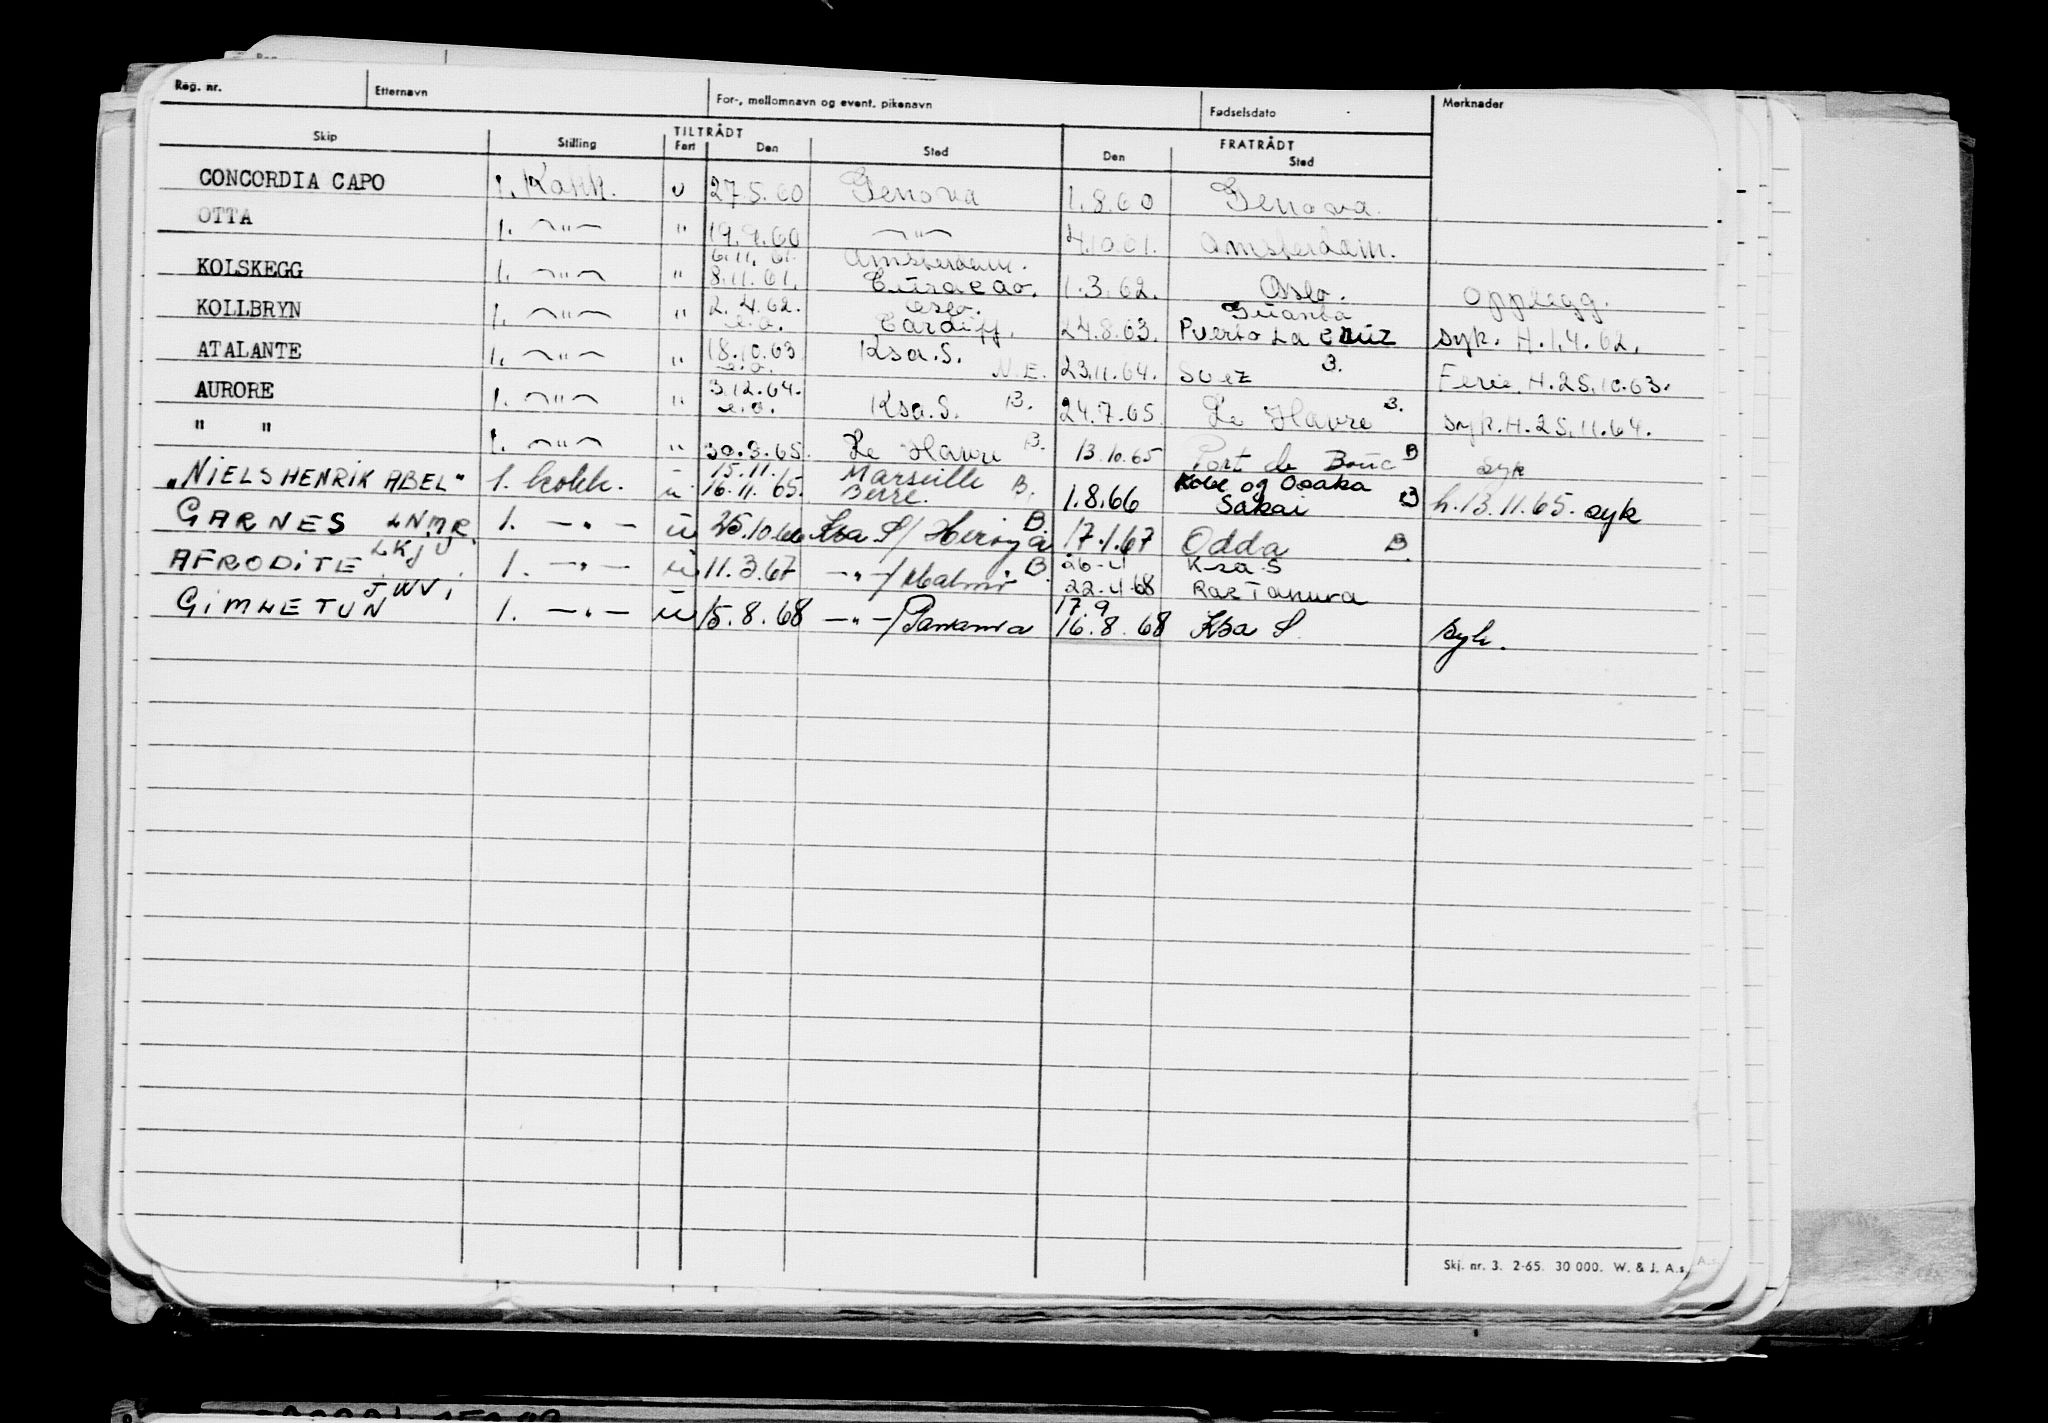 Reg. nr. Etternavn For-, mellomnavn og event. pikenavn Fødselsdato Merknader
TILTRÅDT FRATRÅDT
Skip Stilling Fart Den Sted Den Sted
CONCORDIA CAPO 1. Kokk. u 27.5.60 Genova 1.8.60 Genova.
OTTA 1. —"— " 19.9.60 —"— 4.10 61. Amsterdam.
6.11.61. Amsterdam.
KOLSKEGG 1. —"— " 8.11.61. Curacao. 1.3.62. Oslo. Opplegg.
2.4.62. Oslo. Guanta
KOLLBRYN 1. —"— " e.o. Cardiff. 24.8.63. Puerto La Cruz Syk. H.1.4.62.
ATALANTE 1. —"— " 18.10.63 e.o. Ksa.S. N.E. 23.11.64. Suez B. Ferie. H.25.10.63.
AURORE 1. —"— " 3.12.64. e.o. Ksa.S. B. 24.7.65 Le Havre B. Syk.H.25.11.64.
" " 1. —"— " 30.9.65. Le Havre B. 13.10.65 Port de Bouc B Syk
15.11. Marseille Kobe og Osaka
"NIELS HENRIK ABEL" 1. kokk. u 16.11.65. Berre. B. 1.8.66 Sakai B h.13.11.65. syk
GARNES LNMR. 1. —"— u 25.10.66 Ksa S/Herøya B. 17.1.67 Odda B.
LKJU 26-4 Ksa.S
AFRODITE. 1. —"— u 11.3.67 —"—/Malmø B. 22.4.68 Ras Tanura
JWVI 17.9
GIMLETUN 1. —"— u 15.8.68 —"—/Panama 16.8.68 Ksa S. syk.
Skj. nr. 3. 2-65. 30 000. W. & J. A.s.